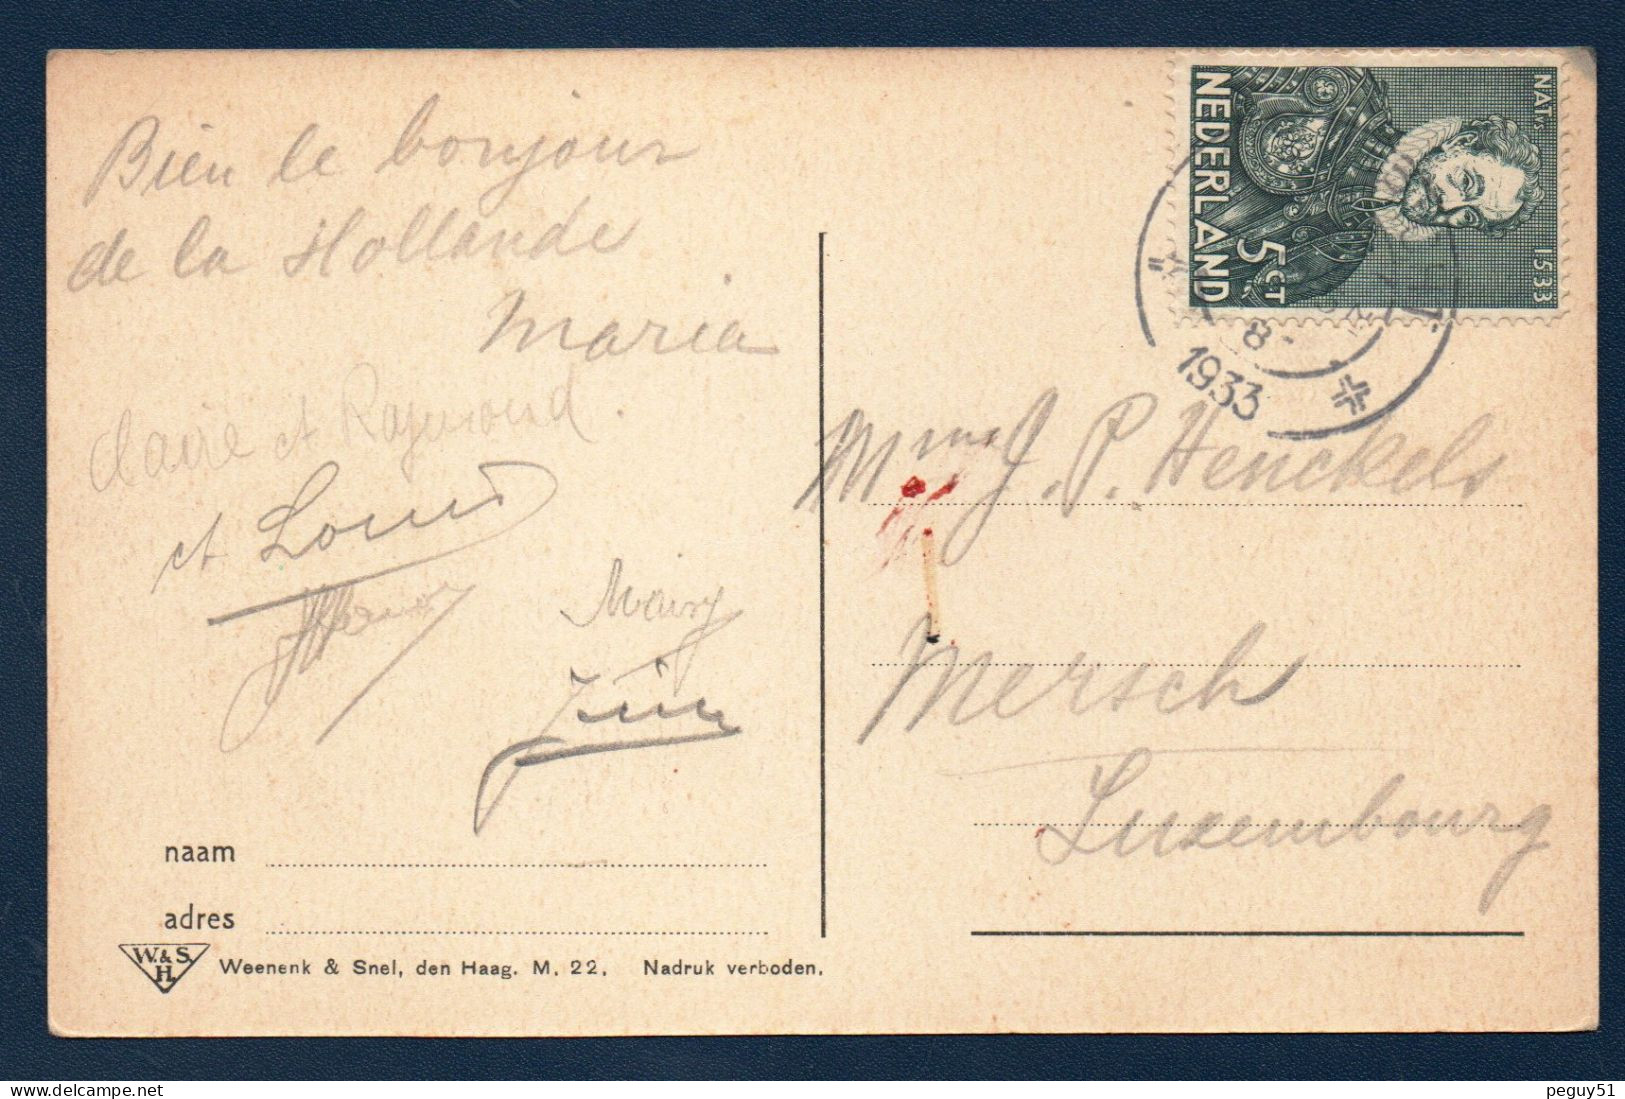 Bien le bonjour
de la Hollande
Maria
Claire et Raymond.
et Louis
Mairy
naam
adres
W.&S.
H.
Weenenk & Snel, den Haag. M. 22. Nadruk verboden.
NEDERLAND
5 CT
NAT.
1533
8
1933
Mme J. P. Henckels
Mersch
Luxembourg
peguy51